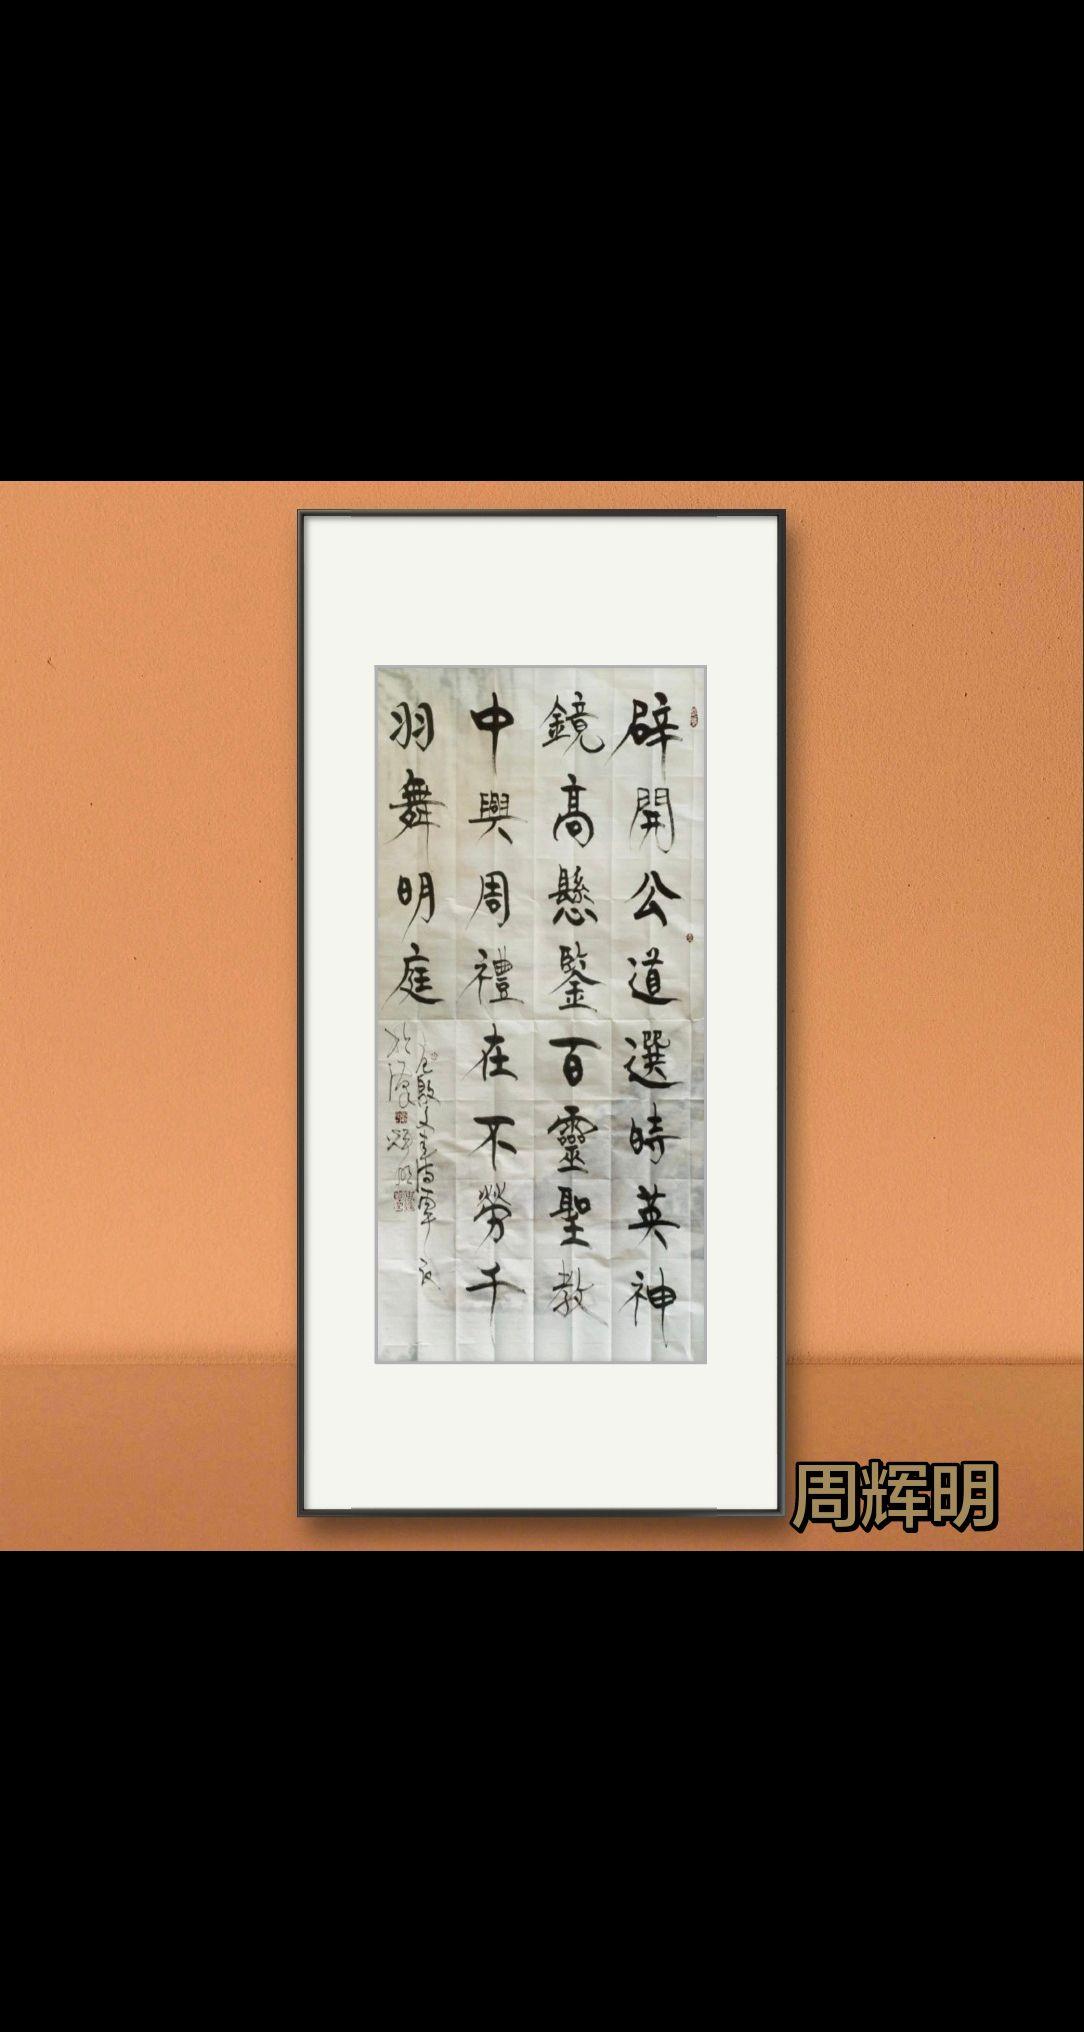 辟開公道選時英神
鏡高懸鑒百靈聖教
中興周禮在不勞千
羽舞明庭
周辉明